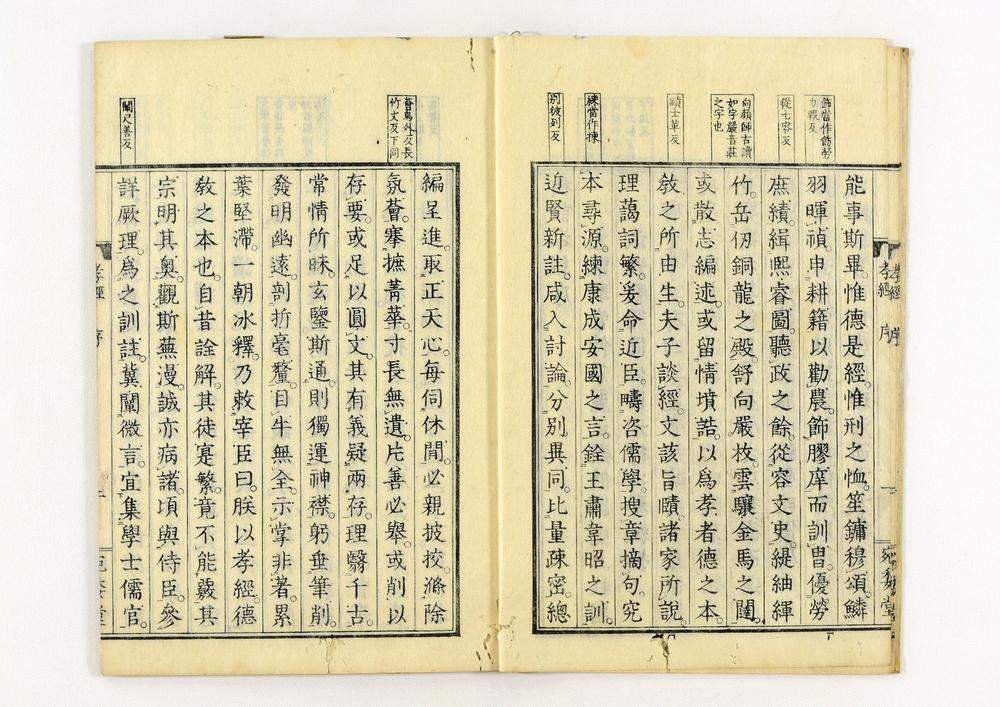 孝經 序 一
飾當作飭勞
力報反
從七容反
向顔師古讀
如字嚴音莊
之字也
賾士革反
練當作揀
別彼列反
能事斯畢惟德是經。惟刑之恤。笙鏞穆頌。鱗
羽暉禎。申耕籍以勸農。飾膠庠而訓冑。優勞
庶績。緝熙睿圖。聽政之餘。從容文史。緹紬緷
竹。岳仞銅龍之殿。舒向嚴枚。雲驤金馬之闥。
或散志編述。或留情墳誥。以爲孝者德之本。
敎之所由生。夫子談經。文該旨賾。諸家所說。
理藹詞繁。爰命近臣。疇咨儒學。搜章摘句。究
本尋源。練康成安國之言。銓王肅韋昭之訓。
近賢新註。咸入討論。分別異同。比量疎密。總
薈烏外反長
竹丈反下同
闡尺善反
編呈進。取正天心。每伺休閒。必親披挍。滌除
氛薈。搴摭菁華。寸長無遺。片善必舉。或削以
存要。或足以圓文。其有義疑兩存。理翳千古。
常情所昧。玄鑒斯通。則獨運神襟。躬垂筆削。
發明幽遠。剖析毫釐。目牛無全。示掌非著。累
葉堅滯。一朝冰釋。乃敕宰臣曰。朕以孝經德
敎之本也。自昔詮解。其徒寔繁。竟不能覈其
宗。明其奧。觀斯蕪漫。誠亦病諸。頃與侍臣。參
詳厥理。爲之訓註。冀闡微言。宜集學士儒官。
孝經 序